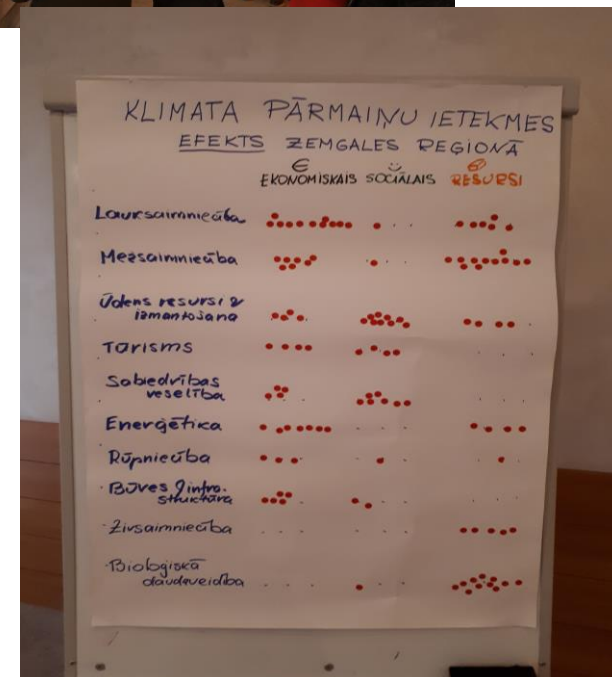 KLIMATA PĀRMAIŅU IETEKMES
EFEKTS ZEMGALES REĢIONĀ
EKONOMISKAIS SOCIĀLAIS RESURSI
Lauksaimniecība
Mežsaimniecība
Ūdens resursi &
izmantošana
TŪRISMS
Sabiedrības
veselība
Enerģētika
Rūpniecība
Būves & infra-
struktūra
Zivsaimniecība
Bioloģiskā
daudzveidība